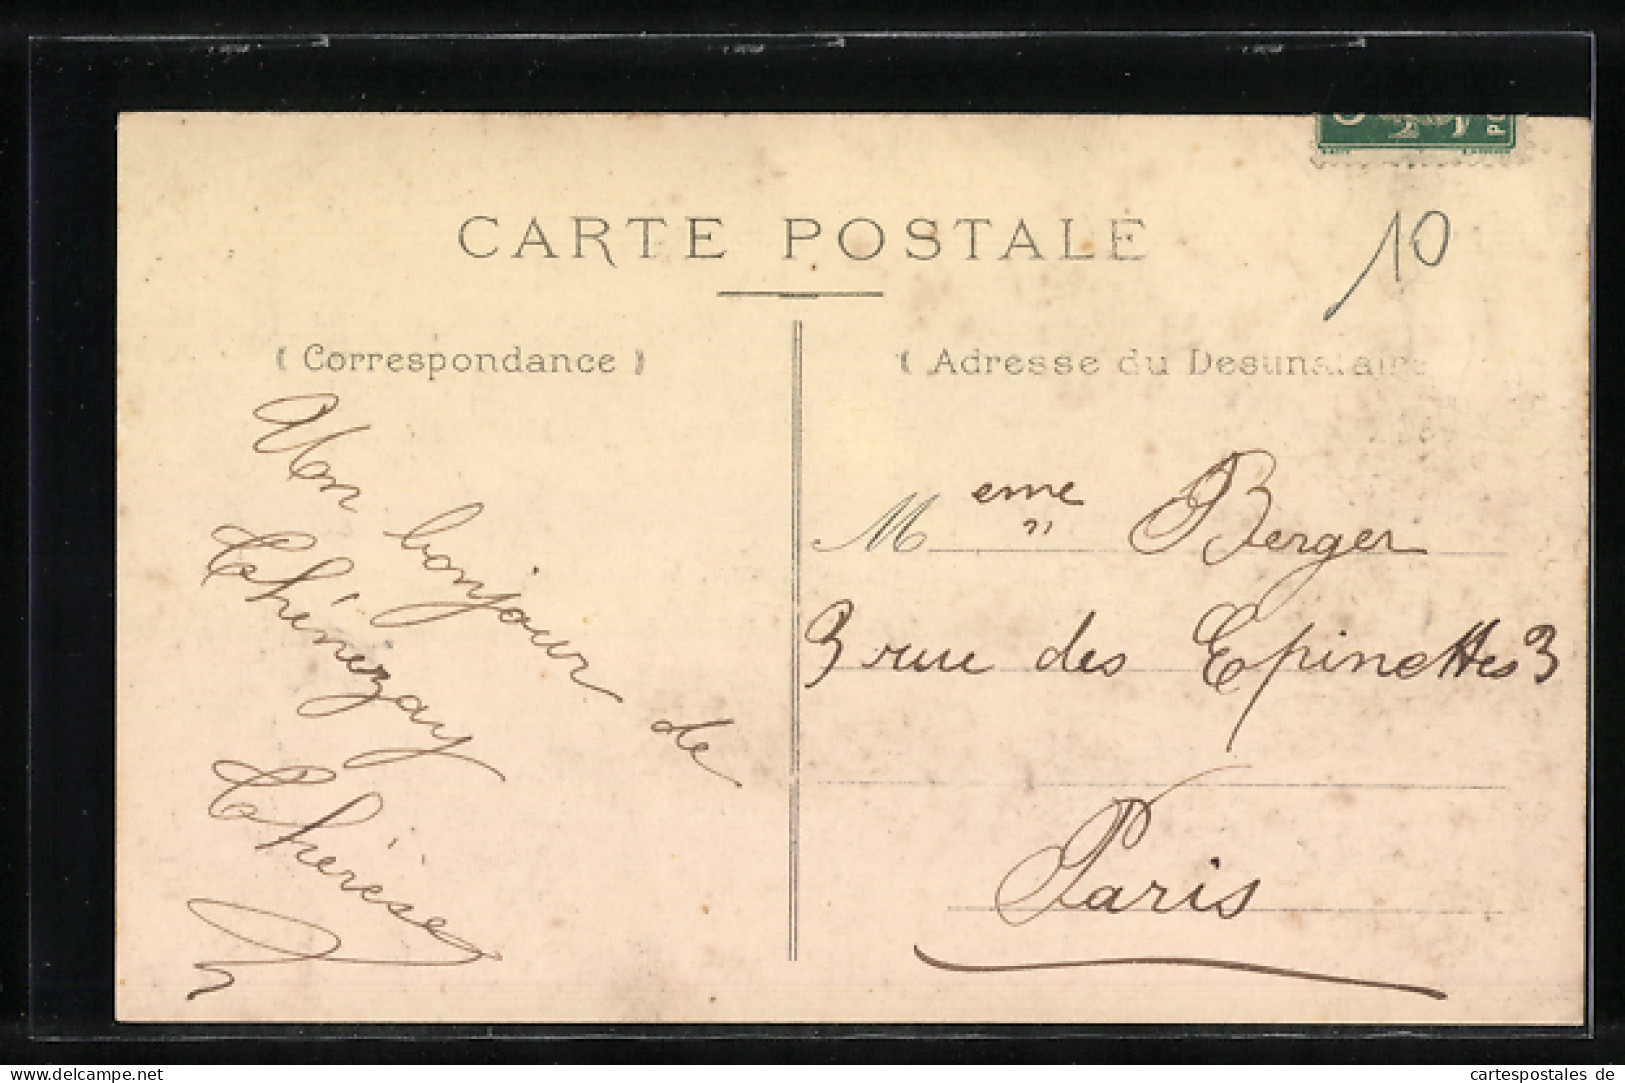 CARTE POSTALE
10
( Correspondance )
( Adresse du Destinataire
Un bonjour de
Thénezay
Thérèse
Meme Berger
3 rue des Epinettes 3
Paris
www.delcampe.net
cartespostales de